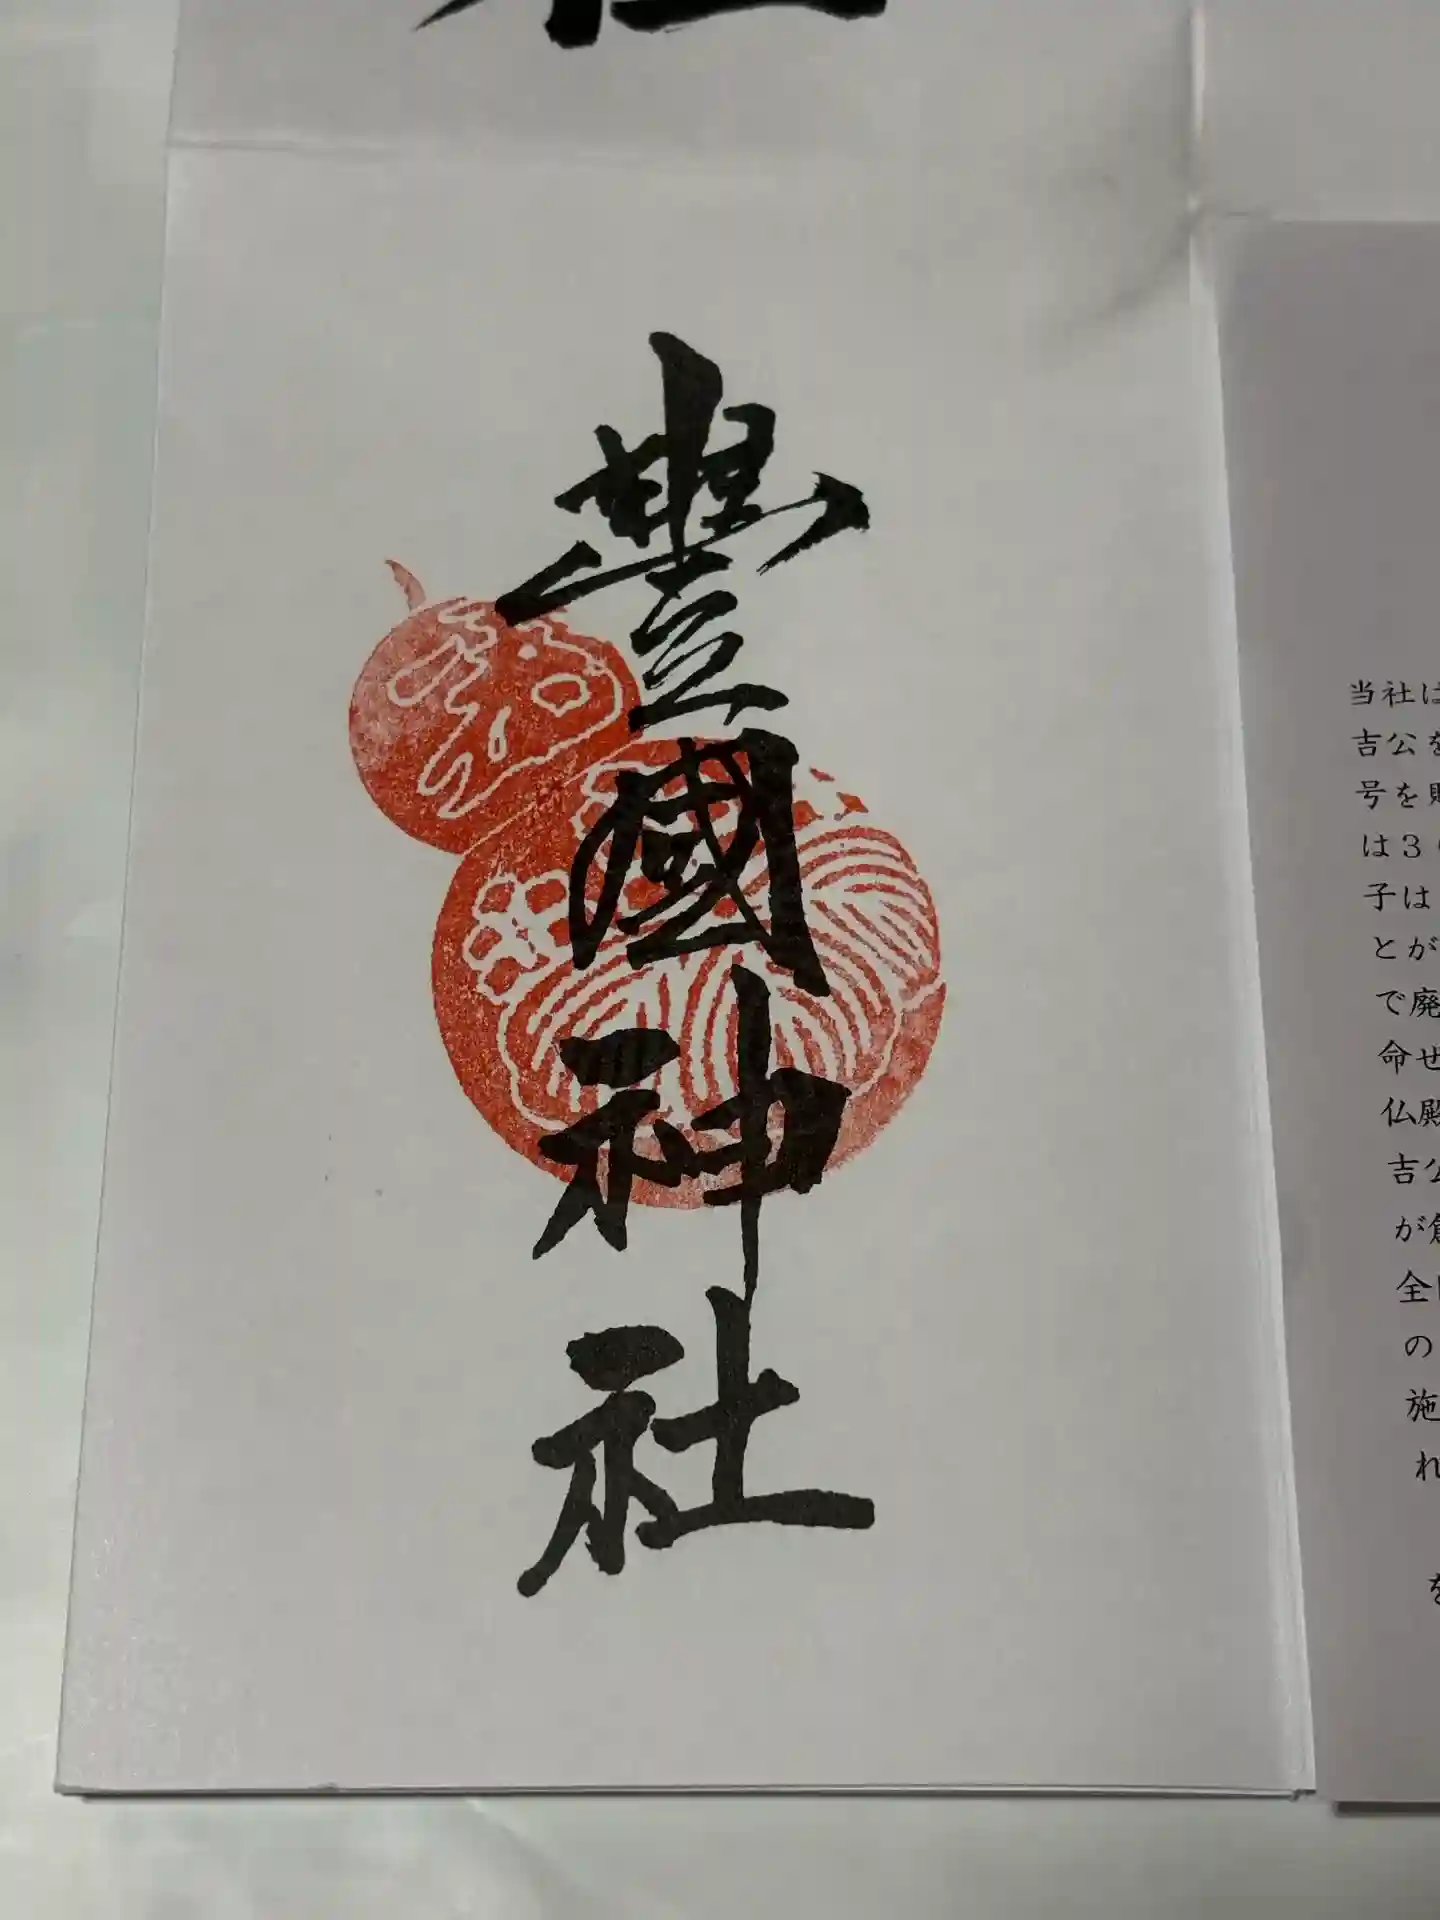 豊國神社
当社は
吉公を
号を賜
は3
子は
とが
で廃
命せ
仏殿
吉公
が創
全国
の
施
れ
を